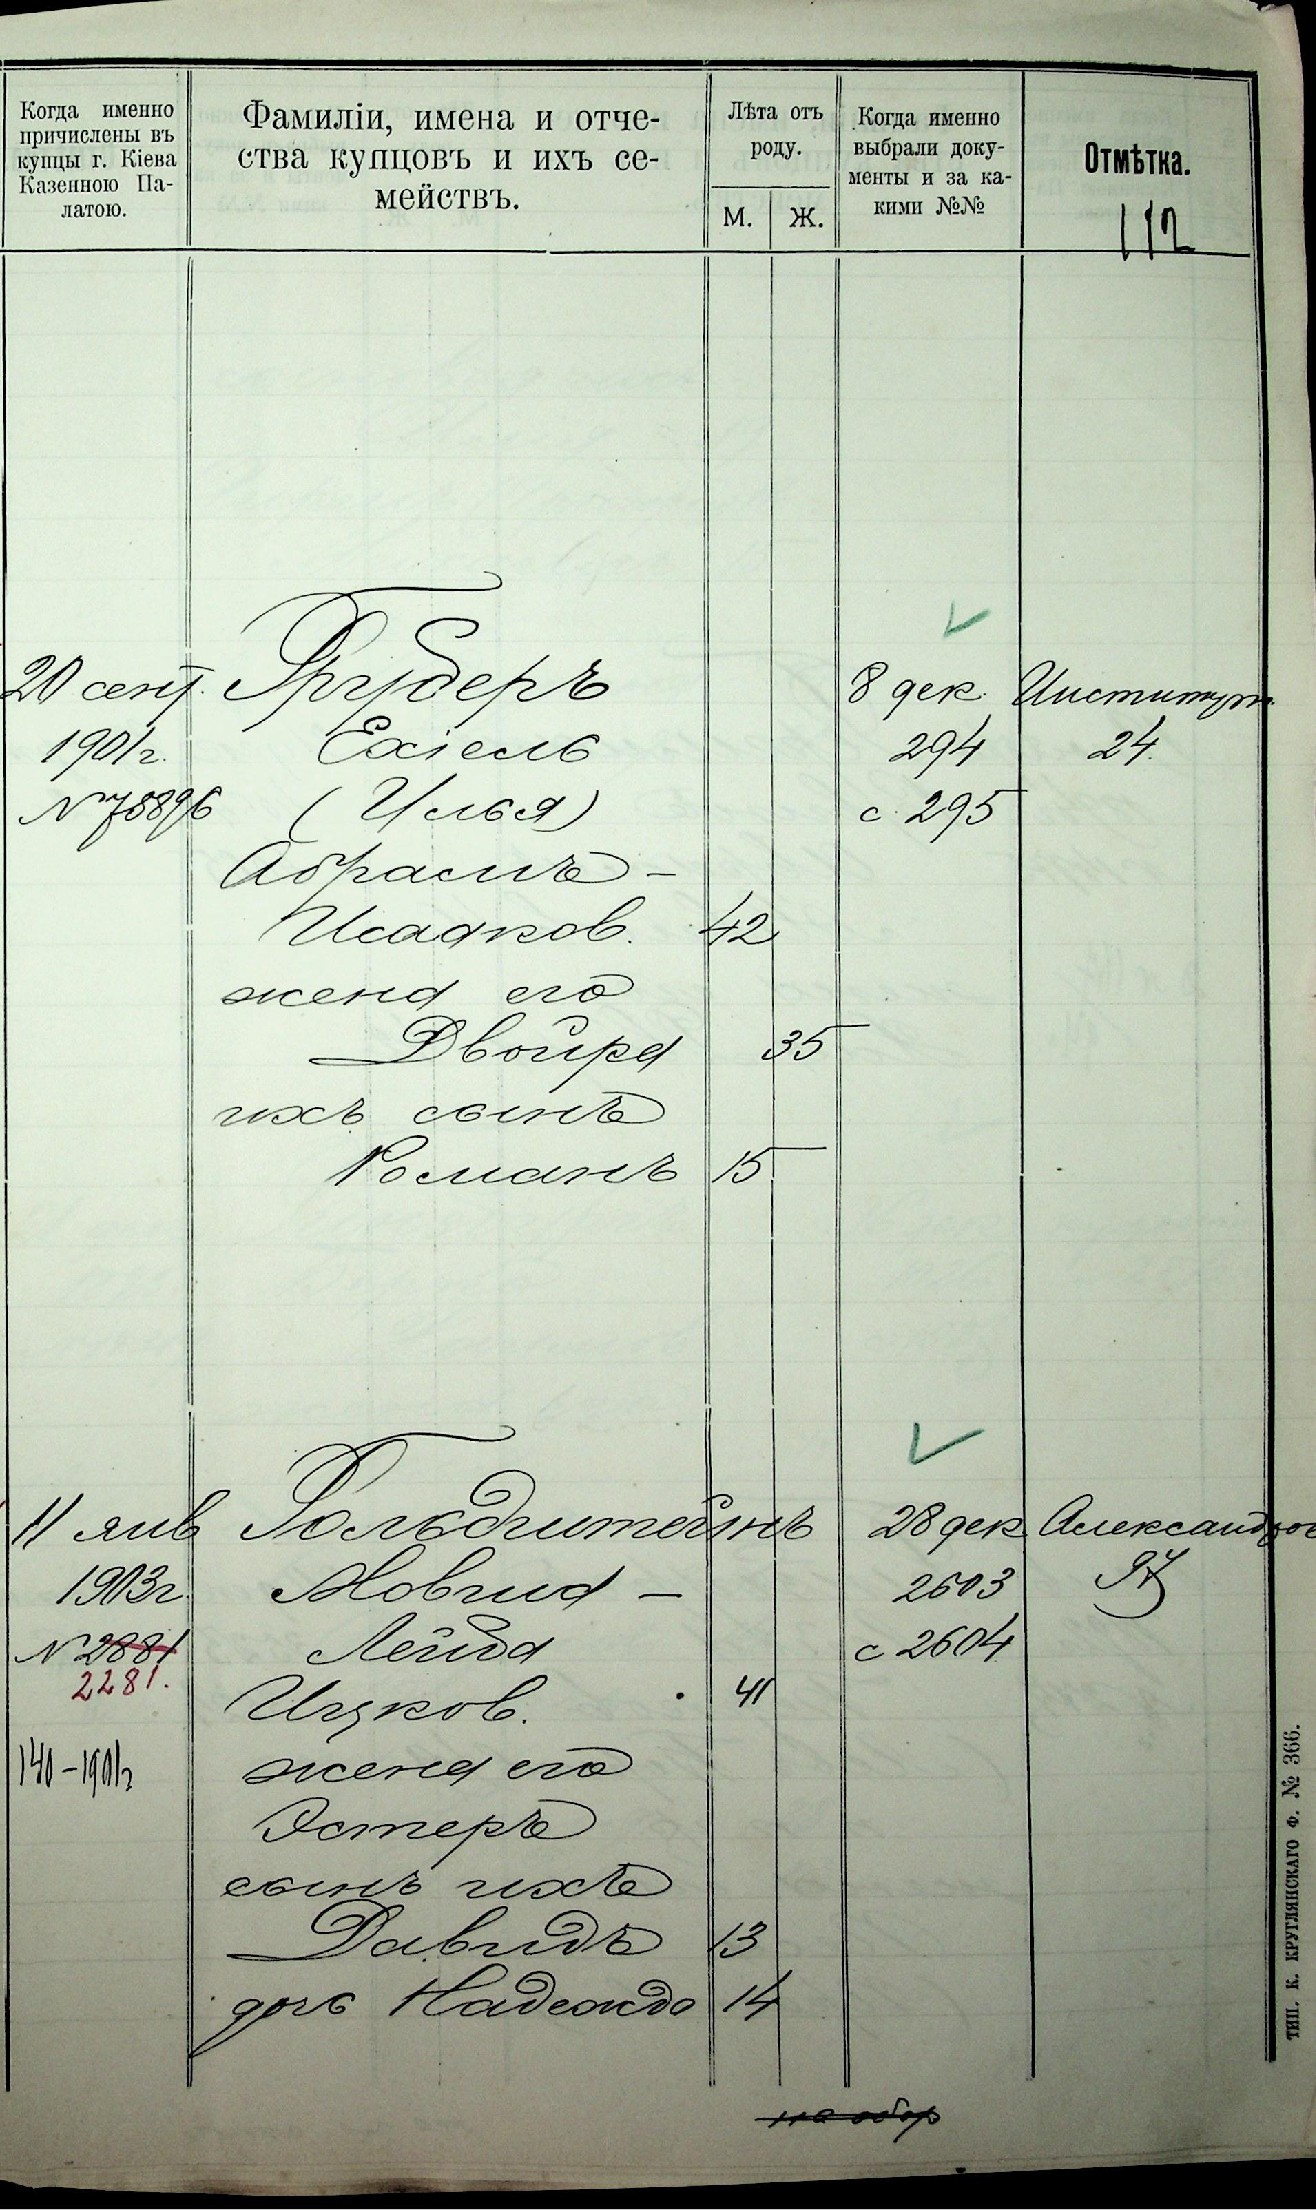 Когда именно
причислены въ
купцы г. Кіева
Казенною Па-
латою.
Фамиліи, имена и отче-
ства купцовъ и ихъ се-
мействъ.
Лѣта отъ
роду.
М. Ж.
Когда именно
выбрали доку-
менты и за ка-
кими №№
Отмѣтка.
112
20 сент. Груберъ 8 дек. Институт.
1901г. Ехіель 294 24.
(Илья) с 295
Абрамъ-
Исааков. 42
жена его
Двойра 35
ихъ сынъ
Романъ 15
11 янв Гольдштейнъ 28 дек Александров
1903г. Мовша- 2603 97
№ 2881 Лейба с 2604
2281.
Ицков. 41
140-1901г жена его
Эстеръ
сынъ ихъ
Давидъ 13
дочь Надежда 14
на обор
ТИП. К. КРУГЛЯНСКАГО Ф. № 366.